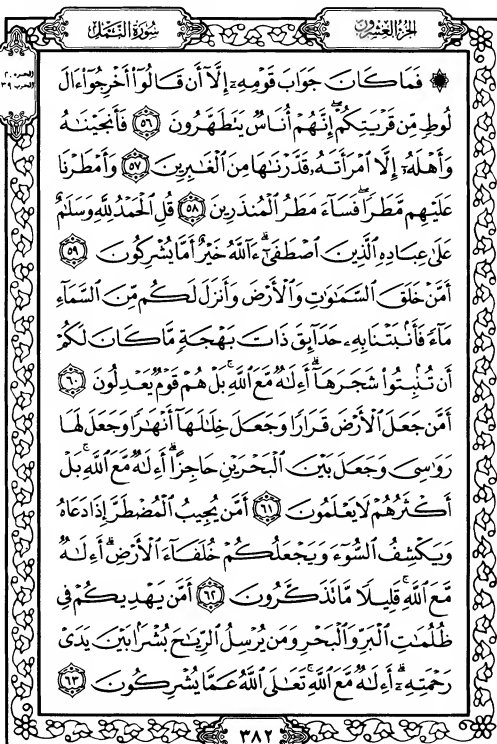 الجزء العشرون
سورة النمل
الجزء ٢٠
الحزب ٣٩
۞ فَمَا كَانَ جَوَابَ قَوْمِهِۦٓ إِلَّآ أَن قَالُوٓاْ أَخْرِجُوٓاْ ءَالَ
لُوطٍ مِّن قَرْيَتِكُمْۖ إِنَّهُمْ أُنَاسٌ يَتَطَهَّرُونَ ٥٦ فَأَنجَيْنَٰهُ
وَأَهْلَهُۥٓ إِلَّا ٱمْرَأَتَهُۥ قَدَّرْنَٰهَا مِنَ ٱلْغَٰبِرِينَ ٥٧ وَأَمْطَرْنَا
عَلَيْهِم مَّطَرًاۖ فَسَآءَ مَطَرُ ٱلْمُنذَرِينَ ٥٨ قُلِ ٱلْحَمْدُ لِلَّهِ وَسَلَٰمٌ
عَلَىٰ عِبَادِهِ ٱلَّذِينَ ٱصْطَفَىٰٓۗ ءَآللَّهُ خَيْرٌ أَمَّا يُشْرِكُونَ ٥٩
أَمَّنْ خَلَقَ ٱلسَّمَٰوَٰتِ وَٱلْأَرْضَ وَأَنزَلَ لَكُم مِّنَ ٱلسَّمَآءِ
مَآءً فَأَنۢبَتْنَا بِهِۦ حَدَآئِقَ ذَاتَ بَهْجَةٍ مَّا كَانَ لَكُمْ
أَن تُنۢبِتُواْ شَجَرَهَآۗ أَءِلَٰهٌ مَّعَ ٱللَّهِۚ بَلْ هُمْ قَوْمٌ يَعْدِلُونَ ٦٠
أَمَّن جَعَلَ ٱلْأَرْضَ قَرَارًا وَجَعَلَ خِلَٰلَهَآ أَنْهَٰرًا وَجَعَلَ لَهَا
رَوَٰسِىَ وَجَعَلَ بَيْنَ ٱلْبَحْرَيْنِ حَاجِزًاۗ أَءِلَٰهٌ مَّعَ ٱللَّهِۚ بَلْ
أَكْثَرُهُمْ لَا يَعْلَمُونَ ٦١ أَمَّن يُجِيبُ ٱلْمُضْطَرَّ إِذَا دَعَاهُ
وَيَكْشِفُ ٱلسُّوٓءَ وَيَجْعَلُكُمْ خُلَفَآءَ ٱلْأَرْضِۗ أَءِلَٰهٌ
مَّعَ ٱللَّهِۚ قَلِيلًا مَّا تَذَكَّرُونَ ٦٢ أَمَّن يَهْدِيكُمْ فِى
ظُلُمَٰتِ ٱلْبَرِّ وَٱلْبَحْرِ وَمَن يُرْسِلُ ٱلرِّيَٰحَ بُشْرًۢا بَيْنَ يَدَىْ
رَحْمَتِهِۦٓۗ أَءِلَٰهٌ مَّعَ ٱللَّهِۚ تَعَٰلَى ٱللَّهُ عَمَّا يُشْرِكُونَ ٦٣
٣٨٢